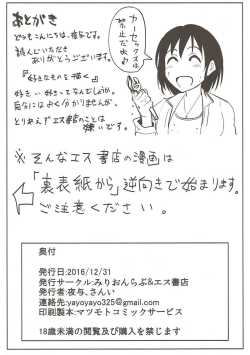 あとがき
どうもこんにちは、夜与です。
読んでいただき
ありがとうございます。
『好きなものを描く』
好き…好きってなんでしょうか。
自分にはよく分かりませんが、
とりあえずエス書店のことは
嫌いです。
カーセックスは
禁止だよ♪
※そんなエス書店の漫画は
「裏表紙から」逆向きで始まります。
ご注意ください。
奥付
発行日:2016/12/31
発行サークル:みりおんらぶ&エス書店
発行者:夜与、さんい
連絡先:yayoyayo325@gmail.com
印刷製本:マツモトコミックサービス
18歳未満の閲覧及び購入を禁じます